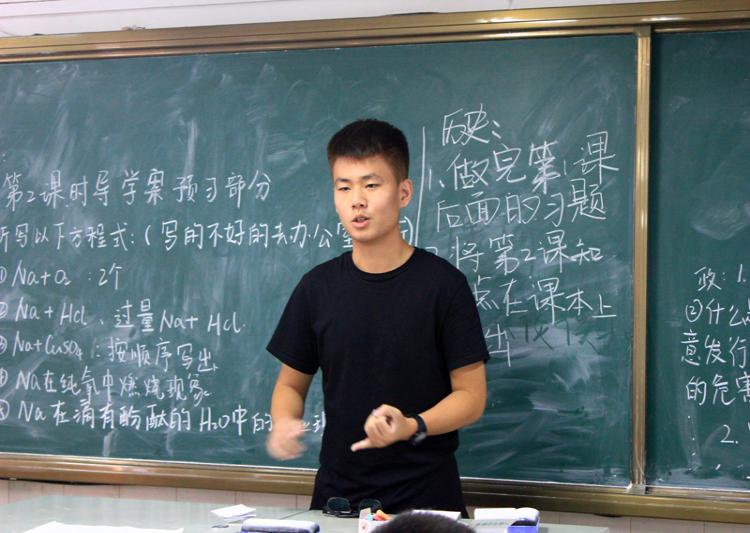 第2课时导学案预习部分
听写以下方程式:(写的不好的去办公室
① Na+O₂ :2个
② Na + HCl、过量Na + HCl.
③ Na+CuSO₄:按顺序写出
④ Na在纯氧中燃烧现象
⑤ Na在滴有酚酞的H₂O中的
历史:
1.做完第1课
后面的习题
2.将第2课知
点在课本上
政:1.
②什么
意发行
的危害
2.